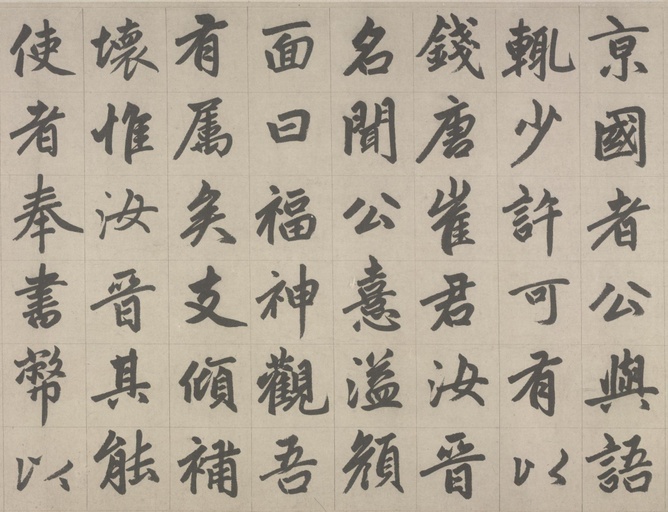 京國者公與語
輒少許可有以
錢唐崔君汝晉
名聞公憙溢顏
面曰福神觀吾
有属矣支傾補
壞惟汝晉其能
使者奉書幣以